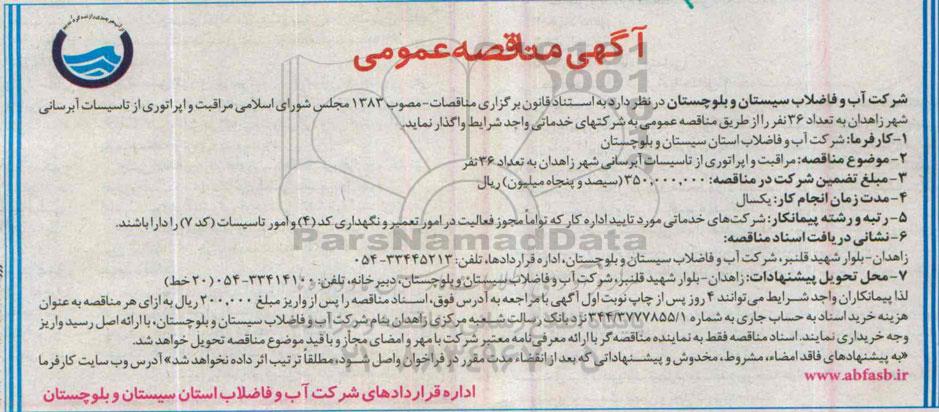 آگهی مناقصه عمومی
شرکت آب و فاضلاب سیستان و بلوچستان در نظر دارد به استناد قانون برگزاری مناقصات-مصوب ۱۳۸۳ مجلس شورای اسلامی مراقبت و اپراتوری از تاسیسات آبرسانی
شهر زاهدان به تعداد ۳۶ نفر را از طریق مناقصه عمومی به شرکتهای خدماتی واجد شرایط واگذار نماید.
۱-کارفرما: شرکت آب و فاضلاب استان سیستان و بلوچستان
۲-موضوع مناقصه: مراقبت و اپراتوری از تاسیسات آبرسانی شهر زاهدان به تعداد ۳۶ نفر
۳-مبلغ تضمین شرکت در مناقصه: ۳۵۰,۰۰۰,۰۰۰ (سیصد و پنجاه میلیون) ریال
۴-مدت زمان انجام کار: یکسال
۵-رتبه و رشته پیمانکار: شرکت‌های خدماتی مورد تایید اداره کار که تواماً مجوز فعالیت در امور تعمیر و نگهداری کد (۴) و امور تاسیسات (کد ۷) را دارا باشند.
۶-نشانی دریافت اسناد مناقصه:
زاهدان-بلوار شهید قلنبر، شرکت آب و فاضلاب سیستان و بلوچستان، اداره قراردادها، تلفن: ۳۳۴۴۵۲۱۳-۰۵۴
۷-محل تحویل پیشنهادات: زاهدان-بلوار شهید قلنبر، شرکت آب و فاضلاب سیستان و بلوچستان، دبیرخانه، تلفن: ۳۳۴۱۴۱۰۰-۰۵۴ (۲۰ خط)
لذا پیمانکاران واجد شرایط می توانند ۴ روز پس از چاپ نوبت اول آگهی با مراجعه به آدرس فوق، اسناد مناقصه را پس از واریز مبلغ ۲۰۰,۰۰۰ ریال به ازای هر مناقصه به عنوان
هزینه خرید اسناد به حساب جاری به شماره ۳۴۴/۳۷۷۷۸۵۵/۱ نزد بانک رسالت شعبه مرکزی زاهدان بنام شرکت آب و فاضلاب سیستان و بلوچستان، با ارائه اصل رسید واریز
وجه خریداری نمایند. اسناد مناقصه فقط به نماینده مناقصه گر با ارائه معرفی نامه معتبر شرکت با مهر و امضای مجاز و با قید موضوع مناقصه تحویل خواهد شد.
«به پیشنهادهای فاقد امضاء، مشروط، مخدوش و پیشنهاداتی که بعد از انقضاء مدت مقرر در فراخوان واصل شود، مطلقا ترتیب اثر داده نخواهد شد» آدرس وب سایت کارفرما
www.abfasb.ir
اداره قراردادهای شرکت آب و فاضلاب استان سیستان و بلوچستان
ParsNamadData